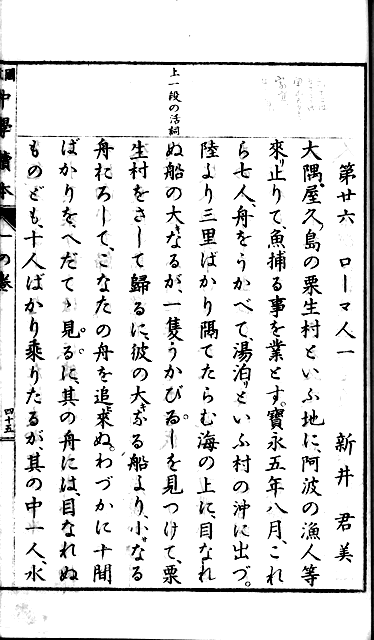 第廿六 ローマ人一 新井君美
大隅屋久島の栗生村といふ地に、阿波の漁人等
來り止りて、魚捕る事を業とす。寶永五年八月、これ
ら七人、舟をうかべて、湯泊といふ村の沖に出づ。
陸より三里ばかり隔てたらむ海の上に、目なれ
ぬ船の大きなるが、一隻うかびゐしを見つけて、栗
生村をさして歸るに、彼の大きなる船より、小なる
舟おろして、こなたの舟を追ひ來ぬ。わづかに十間
ばかりを、へだてゝ見るに、其の舟には、目なれぬ
ものども、十人ばかり乘りたるが、其の中一人、水
上一段の活詞
中學讀本 一の卷
四十五